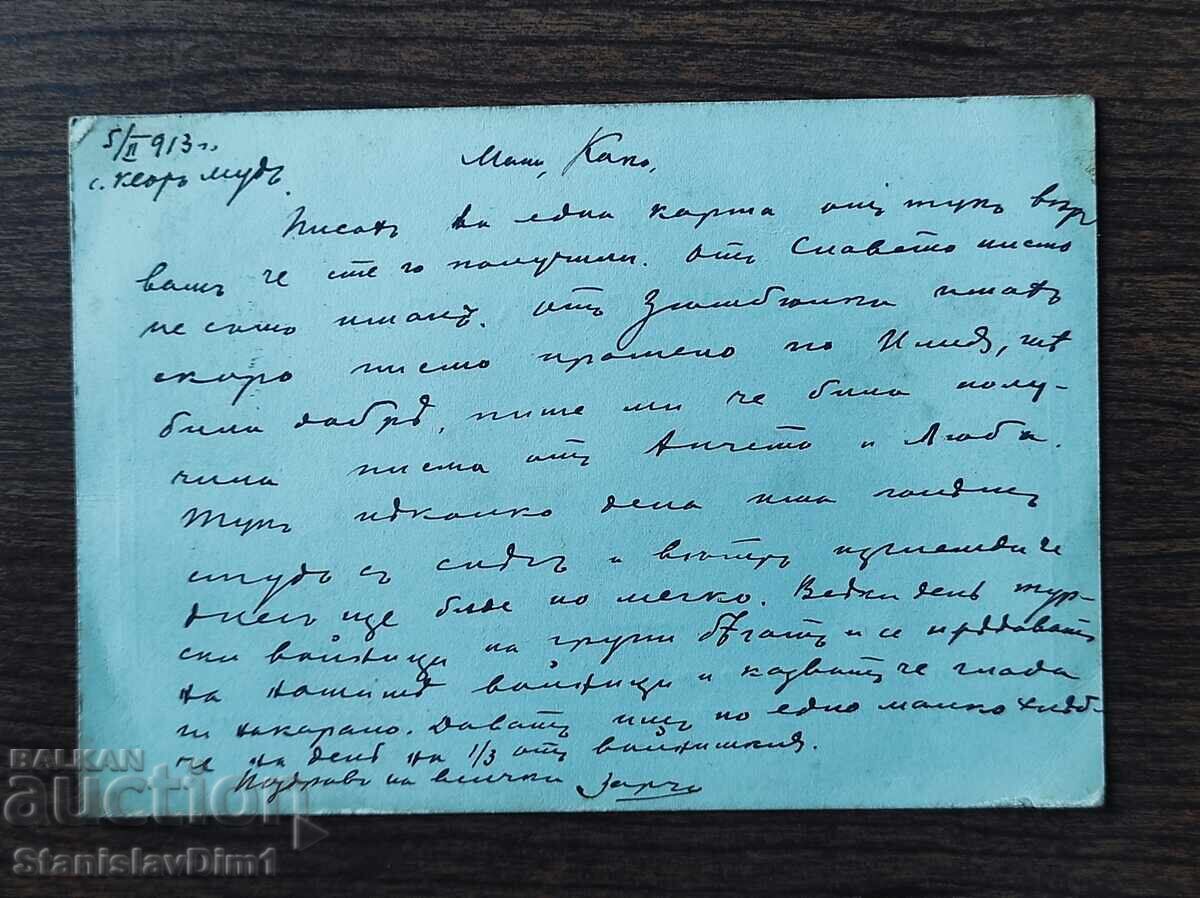 5/II 913 г.
с. Кеоръ Мудъ.
Како,
Писахъ ви една карта отъ тукъ вѣр
вамъ че сте го получили. Отъ Славето писмо
не само имахъ. Отъ Зюмбюлка имахъ
скоро писмо пратено по Илия,
била добрѣ, пише ми че била полу-
чила писма отъ Анчето и Люба.
Тукъ нѣколко дена има голѣмъ
студъ съ снѣгъ и вѣтъръ изглежда че
днесъ ще бѫде по легко. Всѣки день тур-
ски войници на групи бѣгатъ и се прѣдаватъ
на нашитѣ войници и казватъ че глада
ги накарало. Даватъ имъ по едно малко хлѣб-
че на день на 1/3 отъ войнишкия.
Поздравъ на всички
BALKAN
auction
StanislavDim1